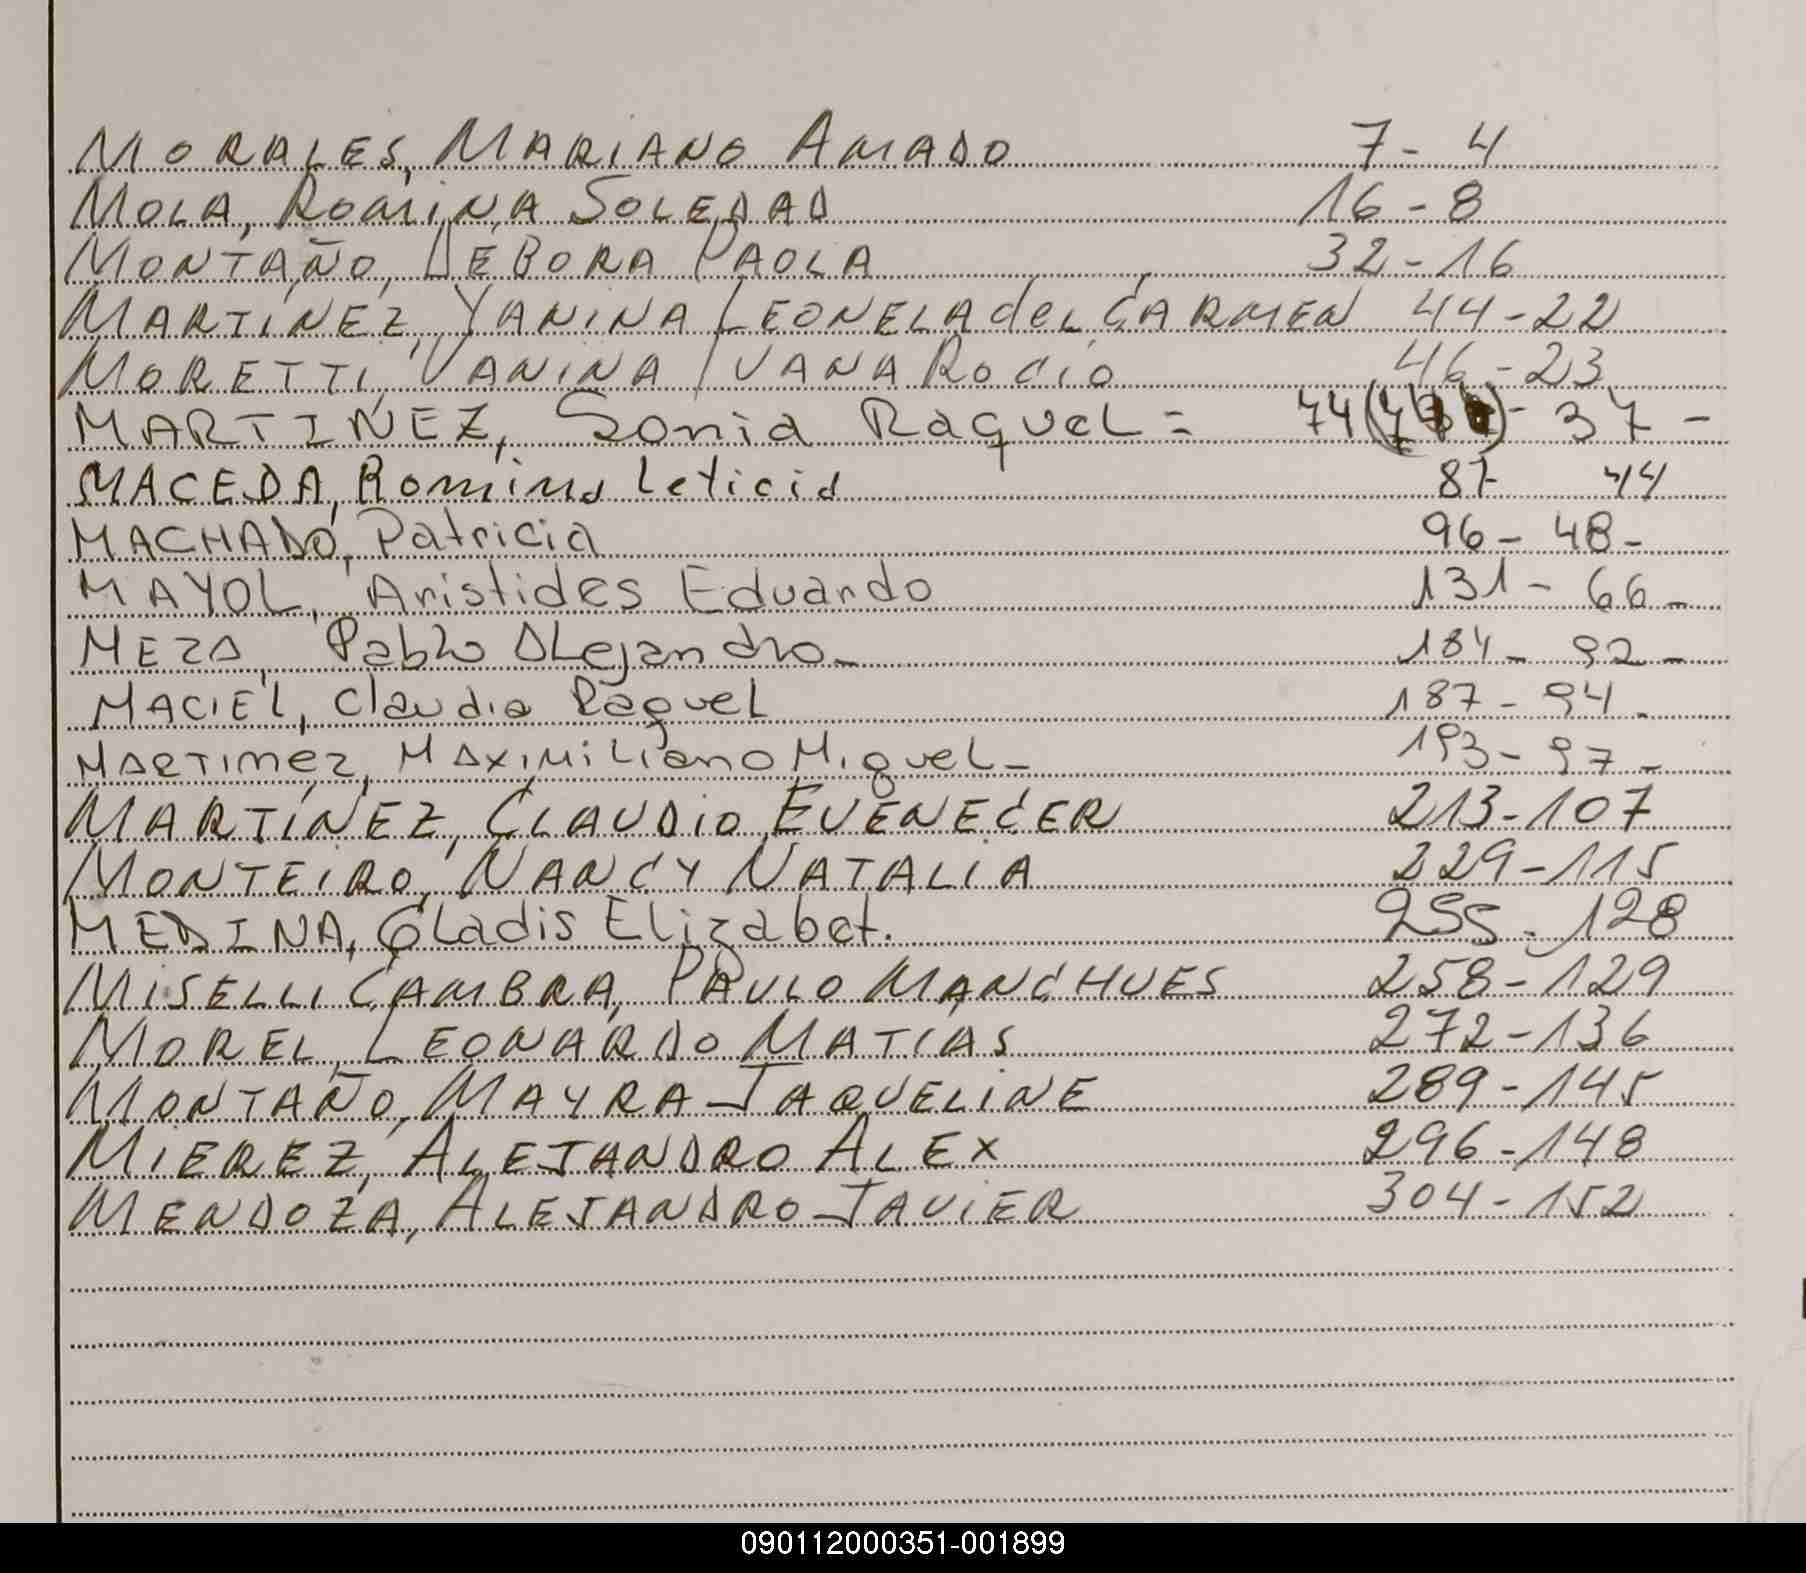 MORALES, MARIANO AMADO 7 - 4
MOLA, ROMINA SOLEDAD 16 - 8
MONTAÑO, DÉBORA PAOLA 32 - 16
MARTINEZ, YANINA LEONELA del CARMEN 44 - 22
MORETTI, VANINA IVANA ROCIO 46 - 23
MARTINEZ, Sonia Raquel = 74 - 37 -
MACEDA, Romina Leticia 87 44
MACHADO, Patricia 96 - 48 -
MAYOL, Aristides Eduardo 131 - 66 -
MEZA, Pablo Alejandro - 184 - 92 -
MACIEL, Claudia Raquel 187 - 94 -
MARTINEZ, MAXIMILIANO Miguel - 193 - 97 -
MARTÍNEZ, CLAUDIO EVENECER 213 - 107
MONTEIRO, NANCY NATALIA 229 - 115
MEDINA, Gladis Elizabet. 255 - 128
MISELLI CAMBRA, PAULO MANCHUES 258 - 129
MOREL, LEONARDO MATIAS 272 - 136
MONTAÑO, MAYRA JAQUELINE 289 - 145
MIEREZ, ALEJANDRO ALEX 296 - 148
MENDOZA, ALEJANDRO JAVIER 304 - 152
090112000351-001899